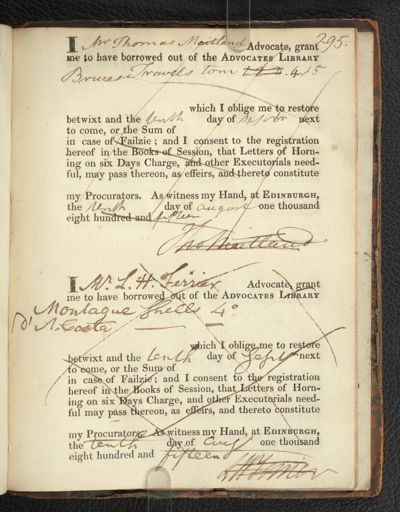 295.
I Mr Thomas Maitland Advocate, grant
me to have borrowed out of the ADVOCATES LIBRARY
Bruces Travels tom 1 2 3. 4 & 5
which I oblige me to restore
betwixt and the tenth day of next
to come, or the Sum of
in case of Failzie; and I consent to the registration
hereof in the Books of Session, that Letters of Horn-
ing on six Days Charge, and other Executorials need-
ful, may pass thereon, as effeirs, and thereto constitute
my Procurators. As witness my Hand, at EDINBURGH,
the tenth day of august one thousand
eight hundred and fifteen
Tho Maitland
I Mr. L. H. Ferrier Advocate, grant
me to have borrowed out of the ADVOCATES LIBRARY
Montague Shells 4o
D'Acosta
which I oblige me to restore
betwixt and the tenth day of Sept next
to come, or the Sum of
in case of Failzie; and I consent to the registration
hereof in the Books of Session, that Letters of Horn-
ing on six Days Charge, and other Executorials need-
ful may pass thereon, as effeirs, and thereto constitute
my Procurators. As witness my Hand, at EDINBURGH,
the tenth day of Aug one thousand
eight hundred and fifteen